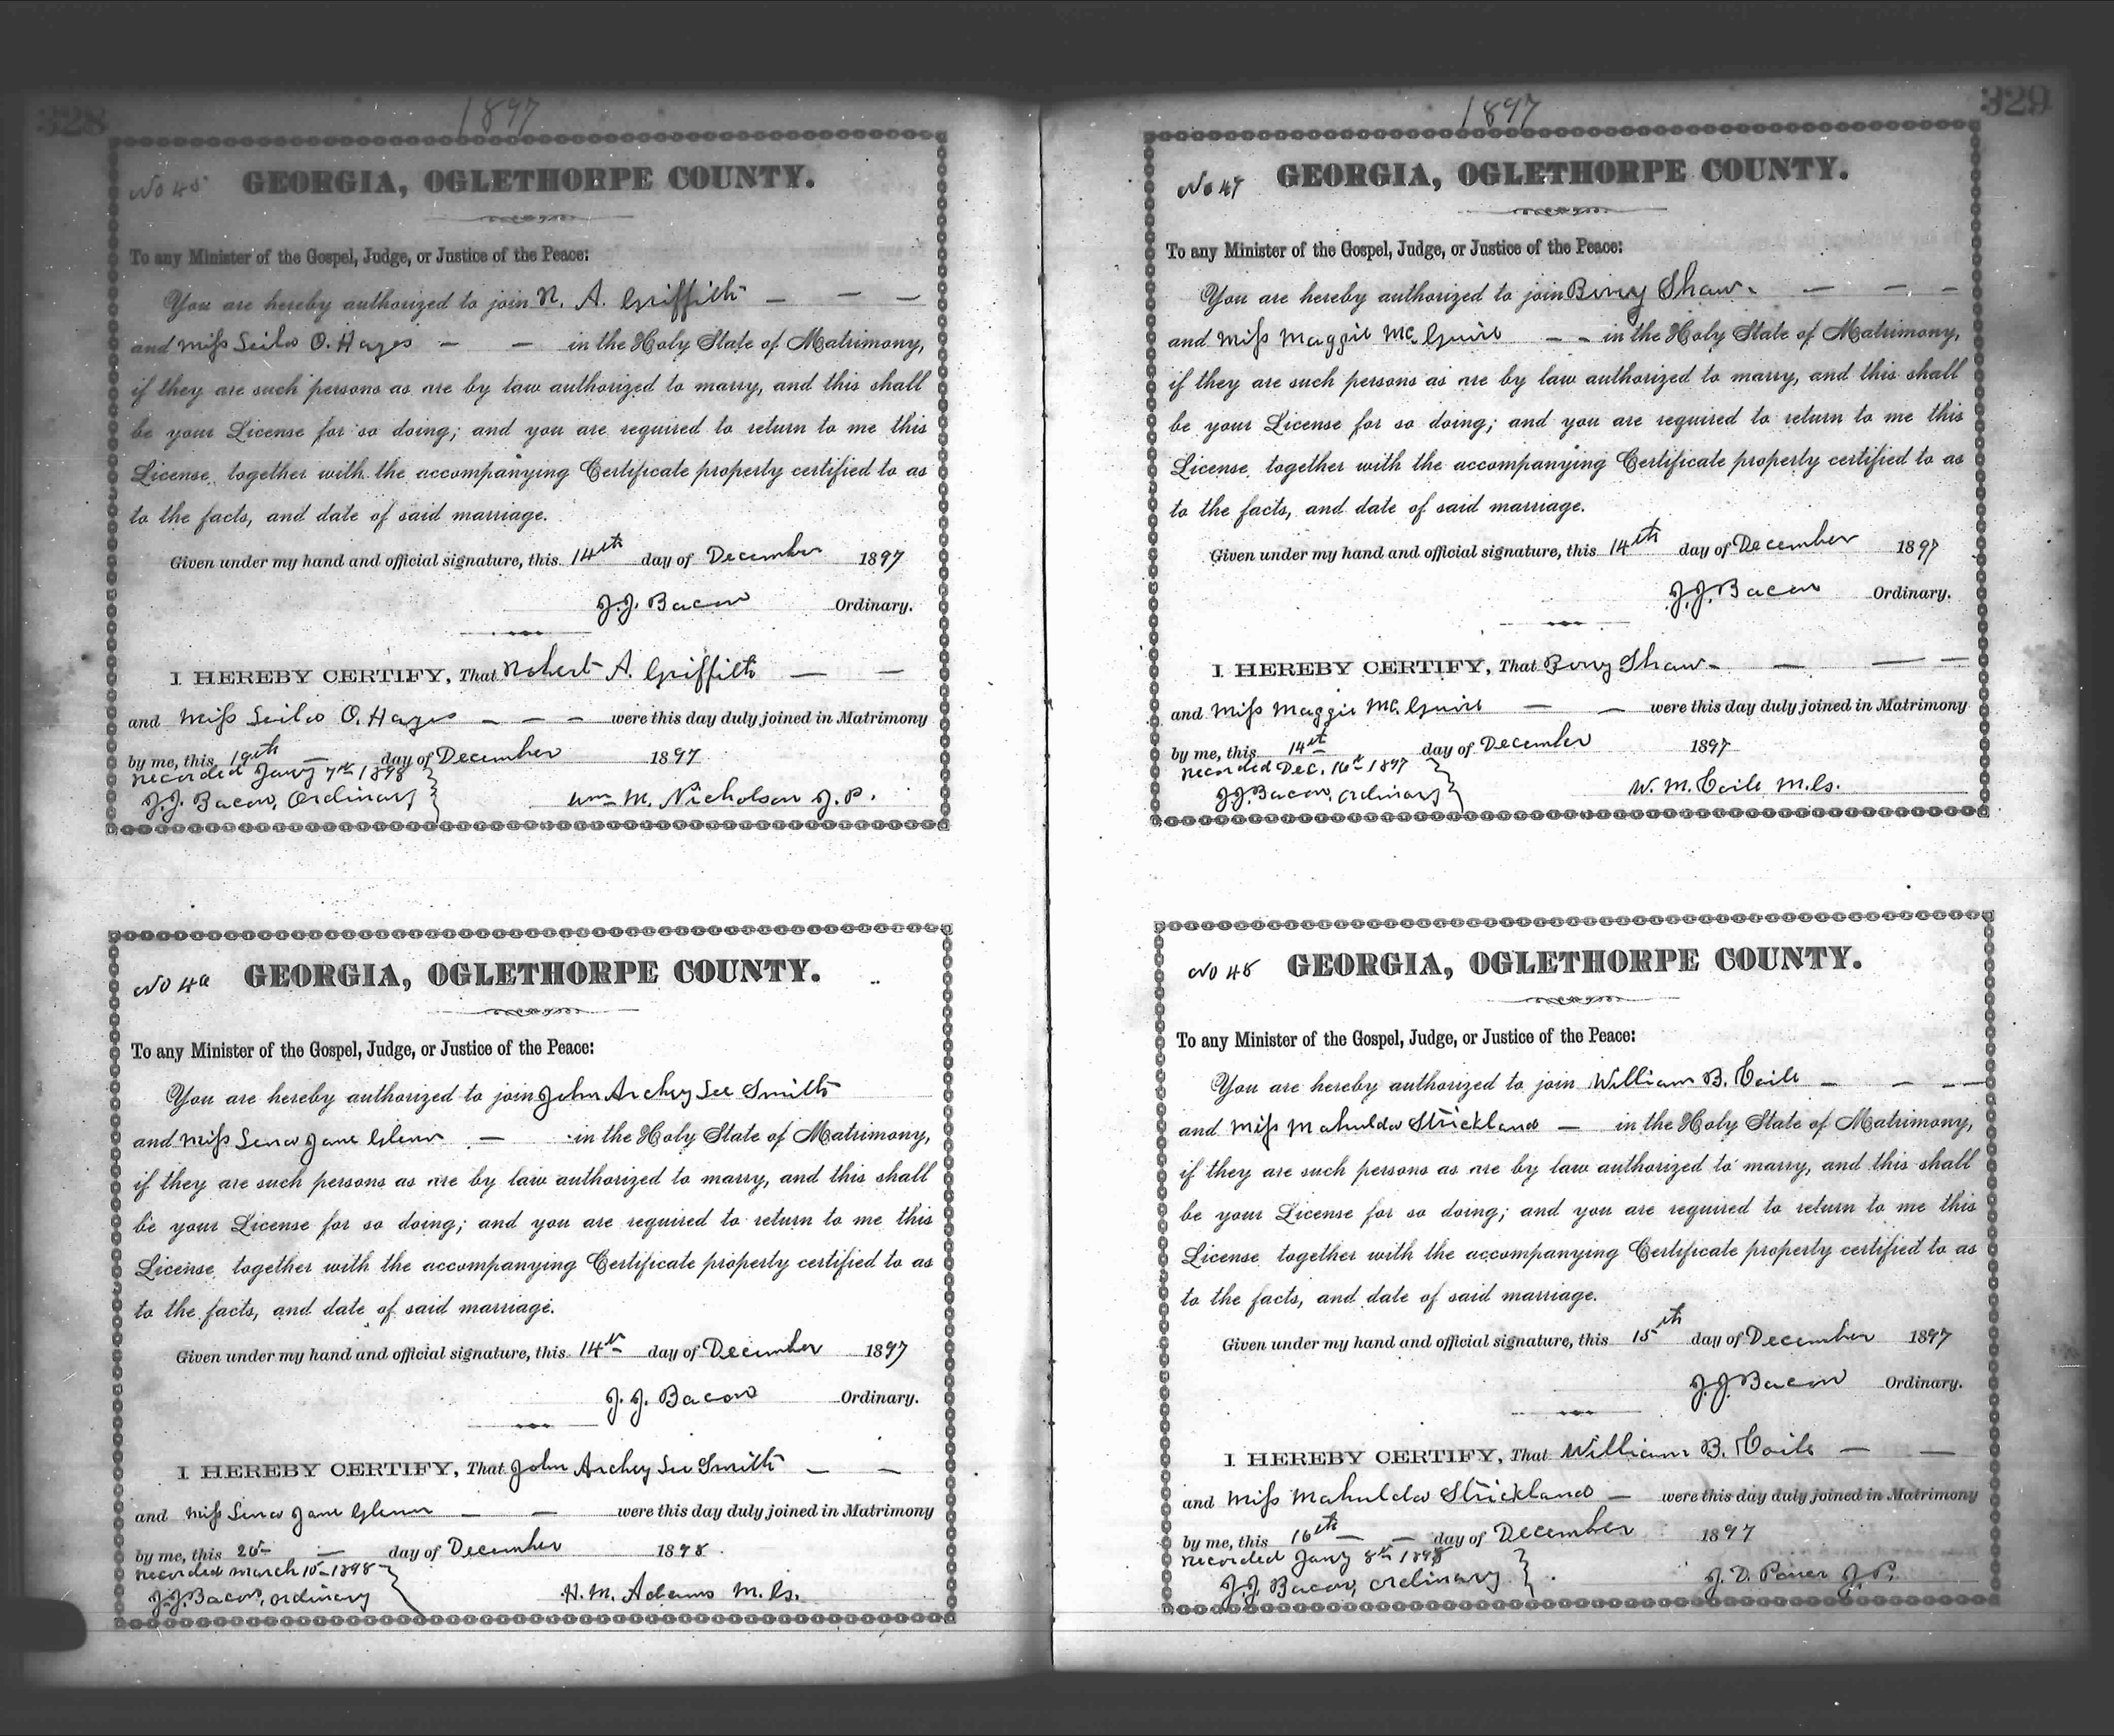 328
1897
No 45 GEORGIA, OGLETHORPE COUNTY.
To any Minister of the Gospel, Judge, or Justice of the Peace:
You are hereby authorized to join R. A. Griffith — — —
and Miss O. Hayes — — in the Holy State of Matrimony,
if they are such persons as are by law authorized to marry, and this shall
be your License for so doing; and you are required to return to me this
License, together with the accompanying Certificate property certified to as
to the facts, and date of said marriage.
Given under my hand and official signature, this 14th day of December 1897
J.J. Bacon Ordinary.
I HEREBY CERTIFY, That Robert A. Griffith — —
and Miss O. Hayes — — — were this day duly joined in Matrimony
by me, this 19th — day of December 1897
recorded Jany 7th 1898
J.J. Bacon, Ordinary
Wm M. Nicholson J.P.
No GEORGIA, OGLETHORPE COUNTY.
To any Minister of the Gospel, Judge, or Justice of the Peace:
You are hereby authorized to join John Archey Lee Smith
and Miss Lena Jane Glenn — in the Holy State of Matrimony,
if they are such persons as are by law authorized to marry, and this shall
be your License for so doing; and you are required to return to me this
License, together with the accompanying Certificate property certified to as
to the facts, and date of said marriage.
Given under my hand and official signature, this 14th day of December 1897
J. J. Bacon Ordinary.
I HEREBY CERTIFY, That John Archey Lee Smith — —
and Miss Lena Jane Glenn — — were this day duly joined in Matrimony
by me, this — day of December 1898
recorded March 15 1898
J.J. Bacon, ordinary
H. M. Adams M.G.
329
1897
No 47 GEORGIA, OGLETHORPE COUNTY.
To any Minister of the Gospel, Judge, or Justice of the Peace:
You are hereby authorized to join Berry Shaw — — —
and Miss Maggie McGuire — — in the Holy State of Matrimony,
if they are such persons as are by law authorized to marry, and this shall
be your License for so doing; and you are required to return to me this
License, together with the accompanying Certificate property certified to as
to the facts, and date of said marriage.
Given under my hand and official signature, this 14th day of December 1897
J.J. Bacon Ordinary.
I HEREBY CERTIFY, That Berry Shaw — — —
and Miss Maggie McGuire — — were this day duly joined in Matrimony
by me, this 14th day of December 1897
recorded Dec. 16th 1897
J.J. Bacon, ordinary
W. M. Coile M.G.
No 48 GEORGIA, OGLETHORPE COUNTY.
To any Minister of the Gospel, Judge, or Justice of the Peace:
You are hereby authorized to join William B. Coile — — —
and Miss Mahulda Strickland — in the Holy State of Matrimony,
if they are such persons as are by law authorized to marry, and this shall
be your License for so doing; and you are required to return to me this
License, together with the accompanying Certificate property certified to as
to the facts, and date of said marriage.
Given under my hand and official signature, this 15th day of December 1897
J.J. Bacon Ordinary.
I HEREBY CERTIFY, That William B. Coile — —
and Miss Mahulda Strickland — were this day duly joined in Matrimony
by me, this 16th — — day of December 1897
recorded Jany 8th 1898
J.J. Bacon, ordinary
J. D. J.P.